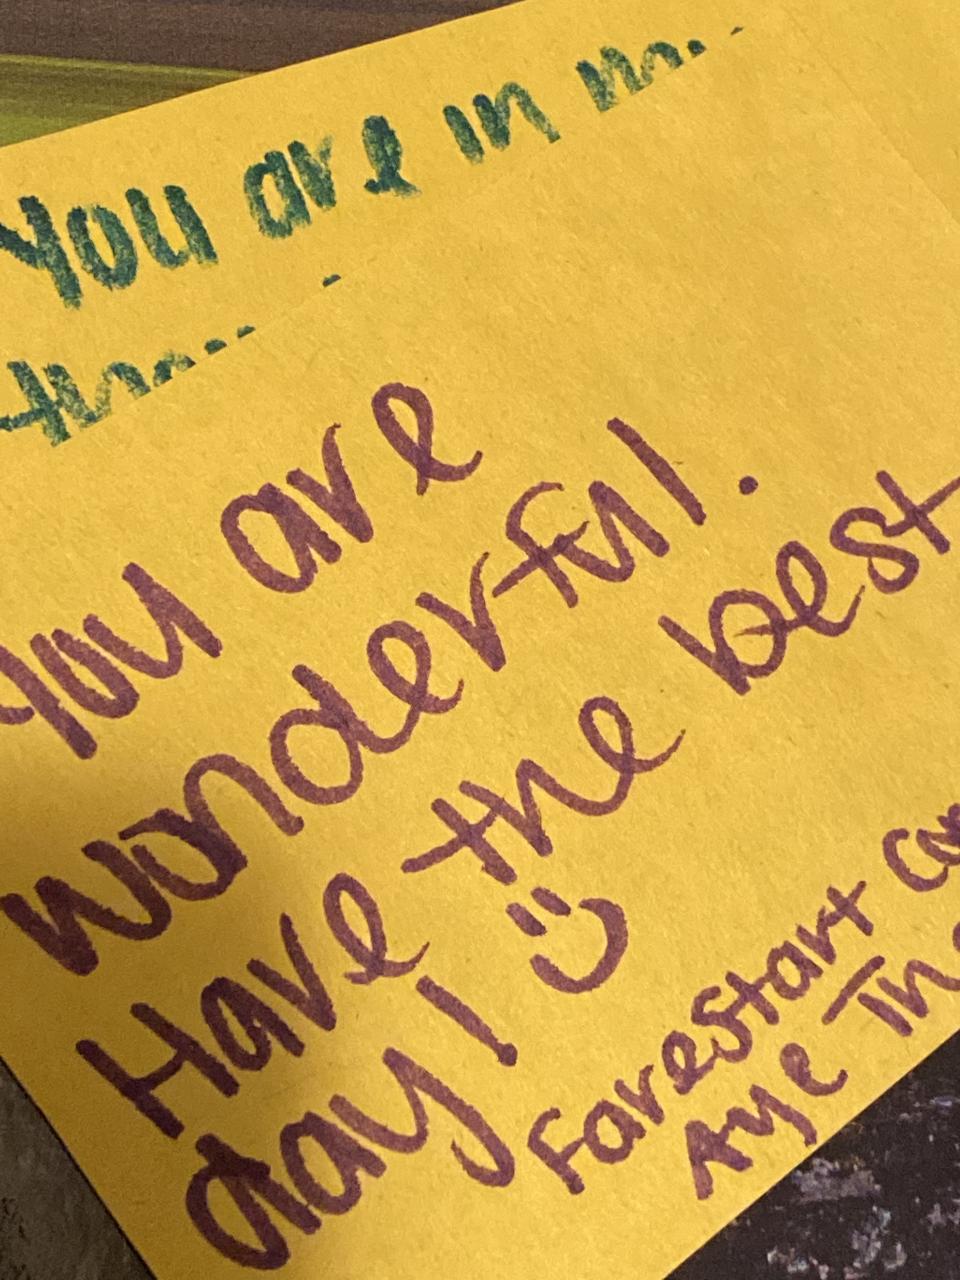 You are in
You are
wonderful.
Have the best
day!
Farestart
Aye